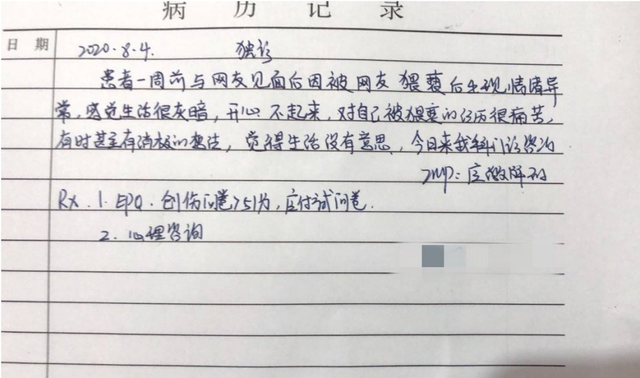 病历记录
日期 2020.8.4. 独诊
患者一周前与网友见面后因被网友猥亵后出现情绪异
常,感觉生活很灰暗,开心不起来,对自己被猥亵的经历很痛苦,
有时甚至有消极的想法,觉得生活没有意思,今日来我科门诊咨询
Imp:应激障碍
Rx.1.EPQ.创伤问卷 应付 问卷.
2.心理咨询